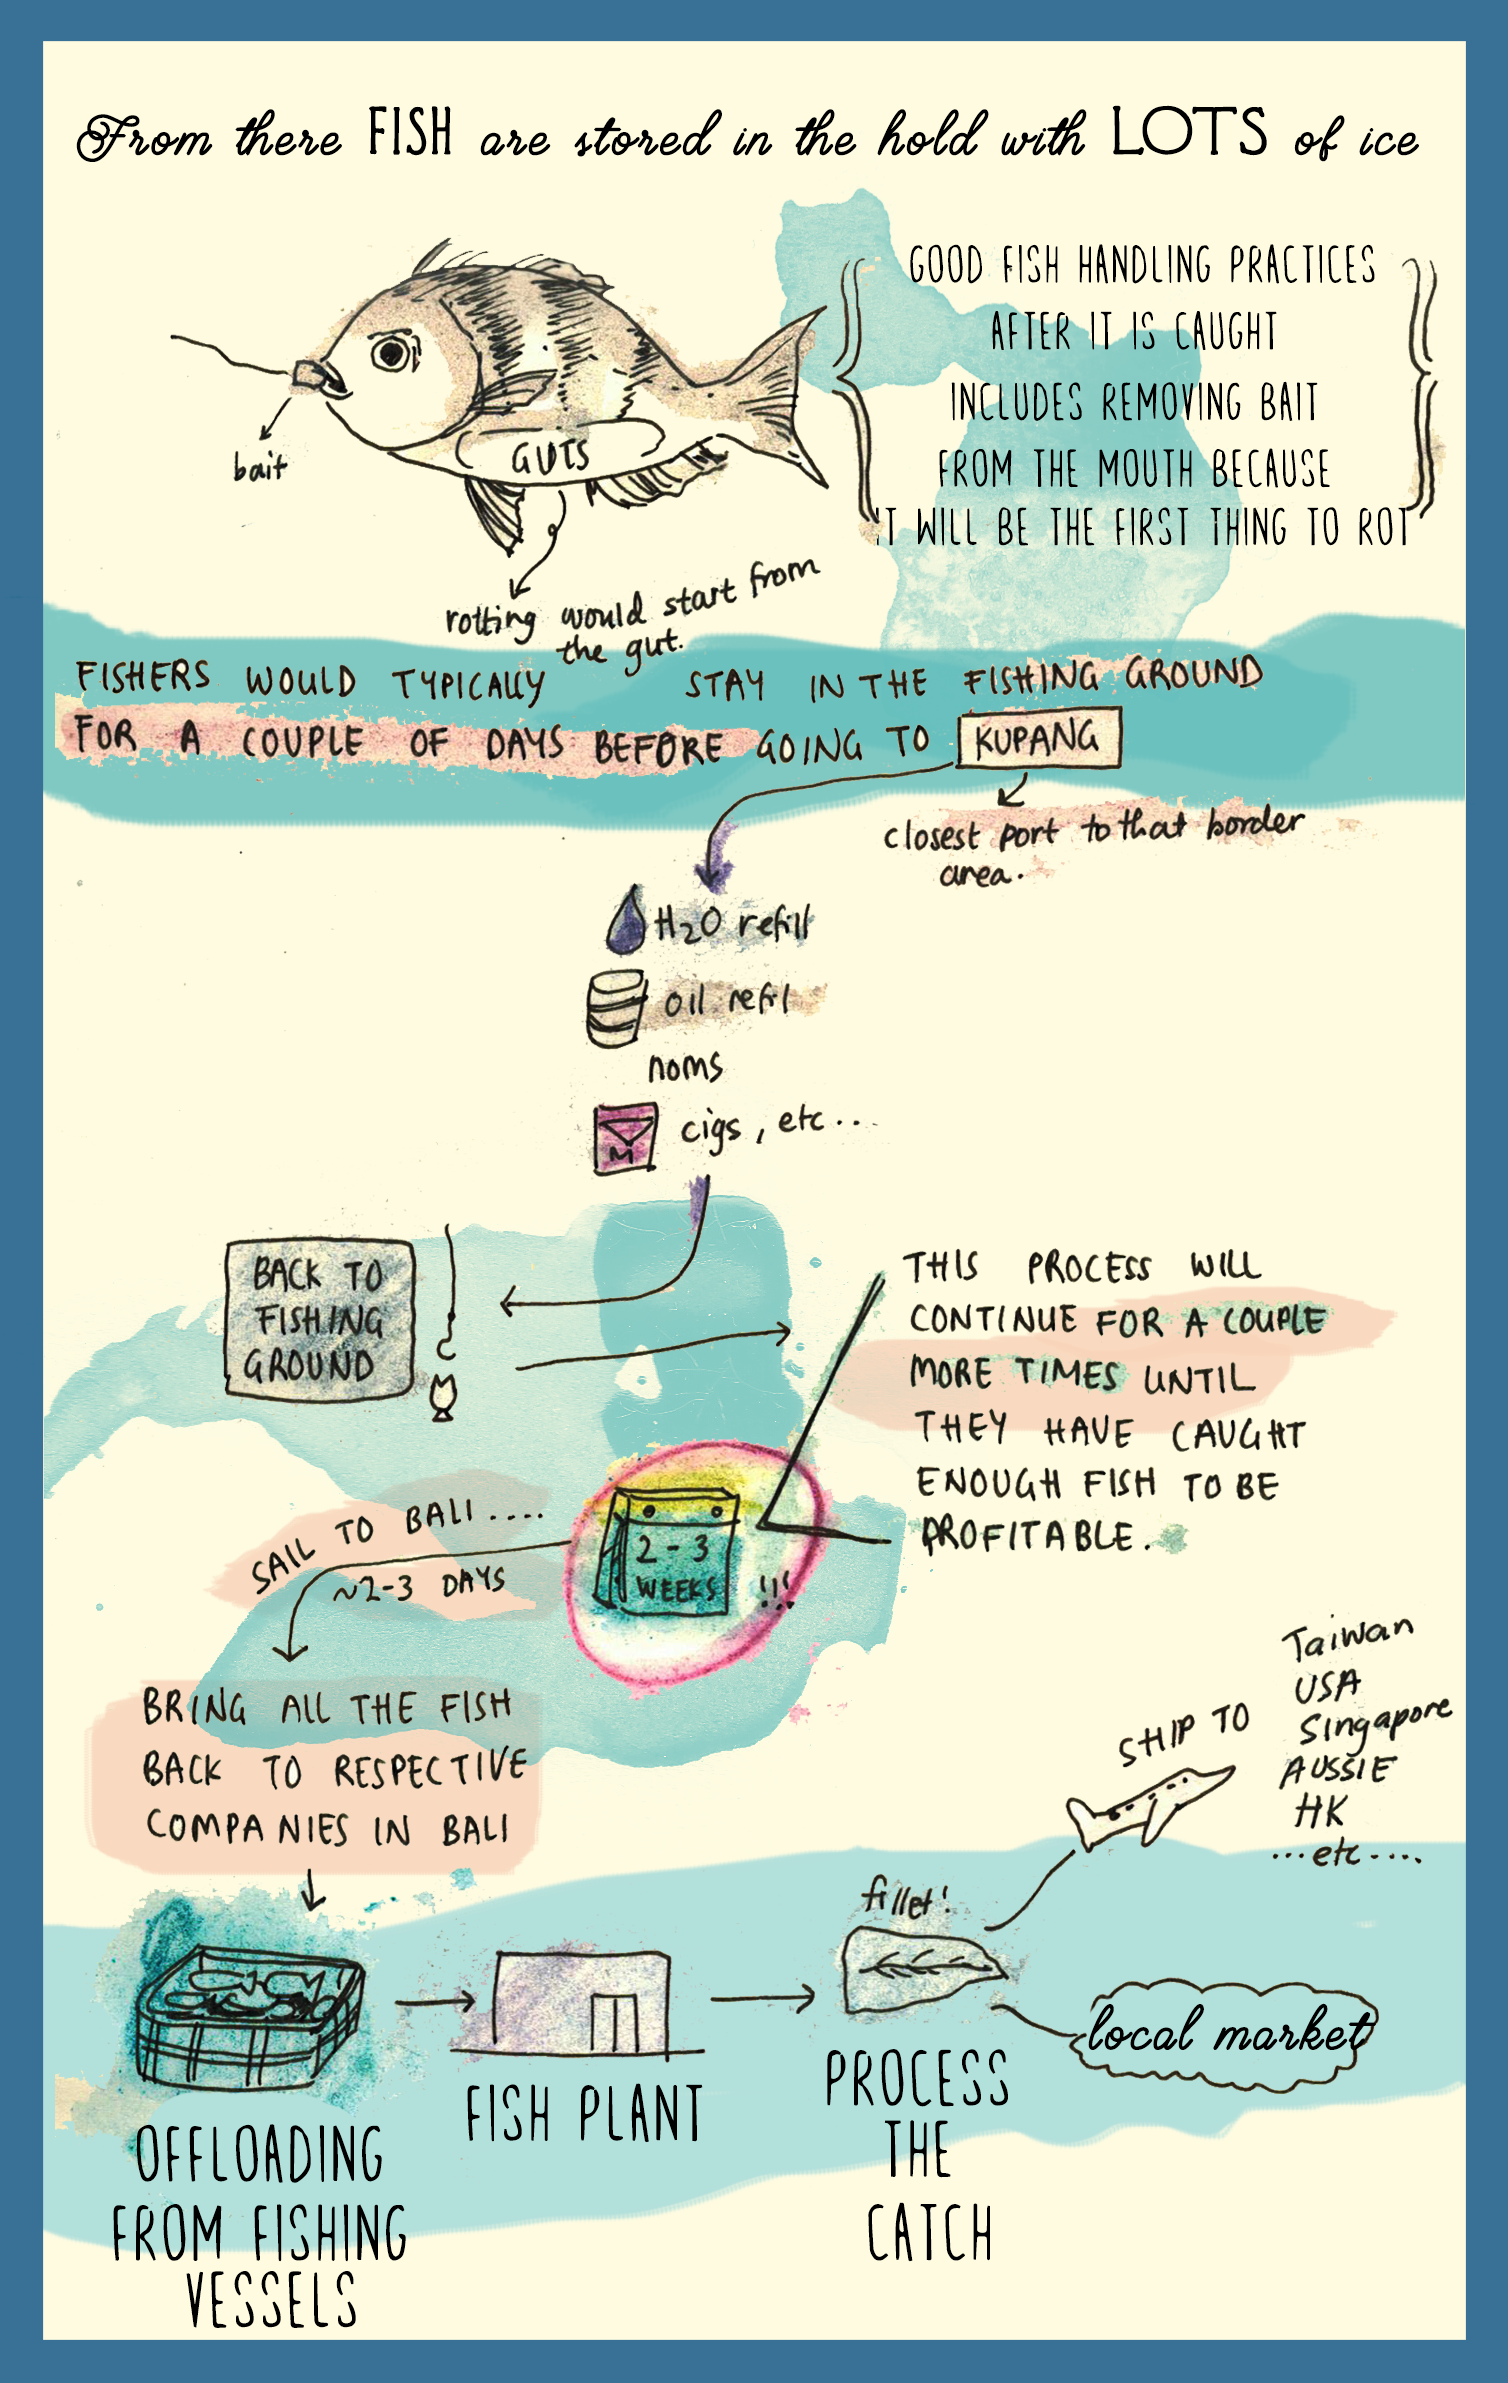 From there FISH are stored in the hold with LOTS of ice
GOOD FISH HANDLING PRACTICES
AFTER IT IS CAUGHT
INCLUDES REMOVING BAIT
FROM THE MOUTH BECAUSE
IT WILL BE THE FIRST THING TO ROT
bait
GUTS
rotting would start from
the gut.
FISHERS WOULD TYPICALLY STAY IN THE FISHING GROUND
FOR A COUPLE OF DAYS BEFORE GOING TO KUPANG
closest port to that border
area.
H2O refill
oil refil
noms
M
cigs, etc...
BACK TO
FISHING
GROUND
THIS PROCESS WILL
CONTINUE FOR A COUPLE
MORE TIMES UNTIL
THEY HAVE CAUGHT
ENOUGH FISH TO BE
PROFITABLE.
SAIL TO BALI....
~2-3 DAYS
2-3
WEEKS !!!
BRING ALL THE FISH
BACK TO RESPECTIVE
COMPANIES IN BALI
SHIP TO
Taiwan
USA
Singapore
AUSSIE
HK
...etc....
fillet!
local market
OFFLOADING
FROM FISHING
VESSELS
FISH PLANT
PROCESS
THE
CATCH